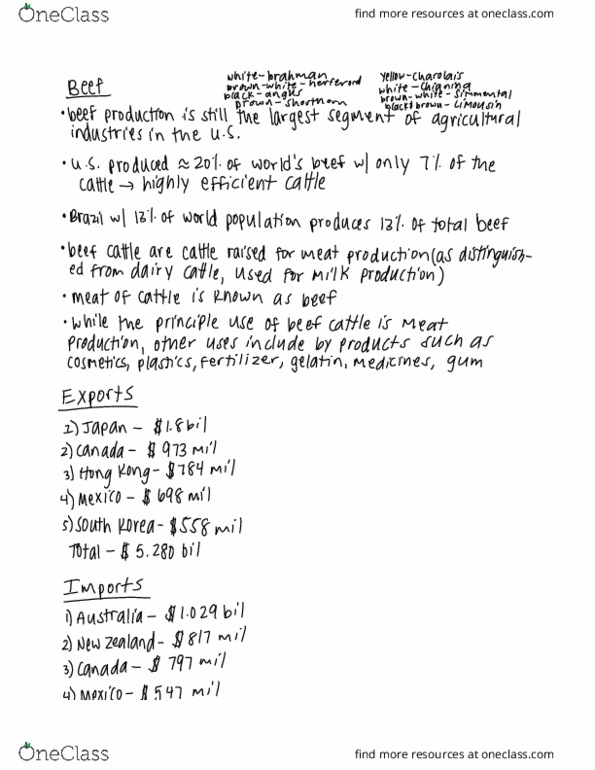 OneClass
find more resources at oneclass.com
white-brahman
brown-white-herferord
black-angus
brown-shorthorn
yellow-charolais
white-chianina
brown-white-simmental
black&brown-limousin
Beef
•beef production is still the largest segment of agricultural
industries in the u.s.
•u.s. produced ≈20% of world's beef w/ only 7% of the
cattle → highly efficient cattle
•Brazil w/ 13% of world population produces 13% of total beef
•beef cattle are cattle raised for meat production(as distinguish-
ed from dairy cattle, used for milk production)
•meat of cattle is known as beef
•while the principle use of beef cattle is meat
production, other uses include by products such as
cosmetics, plastics, fertilizer, gelatin, medicines, gum
Exports
1) Japan - $1.8bil
2) Canada - $973 mil
3) Hong Kong - $784 mil
4) Mexico - $698 mil
5) South Korea - $558 mil
Total - $5.280 bil
Imports
1) Australia - $1.029 bil
2) New Zealand - $817 mil
3) Canada - $797 mil
4) Mexico - $547 mil
OneClass
find more resources at oneclass.com